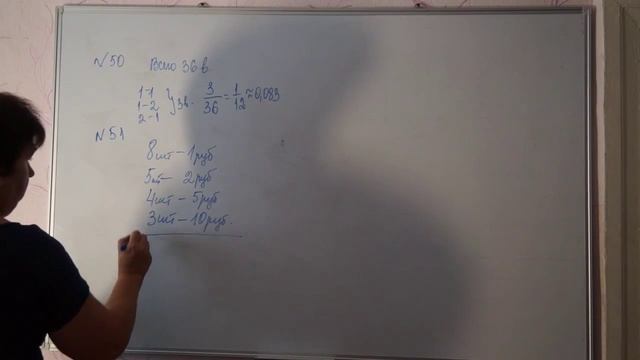 №50 Всего 36 в.
1-1
1-2 } 3в. 3/36 = 1/12 ≈ 0,083
2-1
№51
8шт – 1руб
5шт – 2руб
4шт – 5руб
3шт – 10руб.